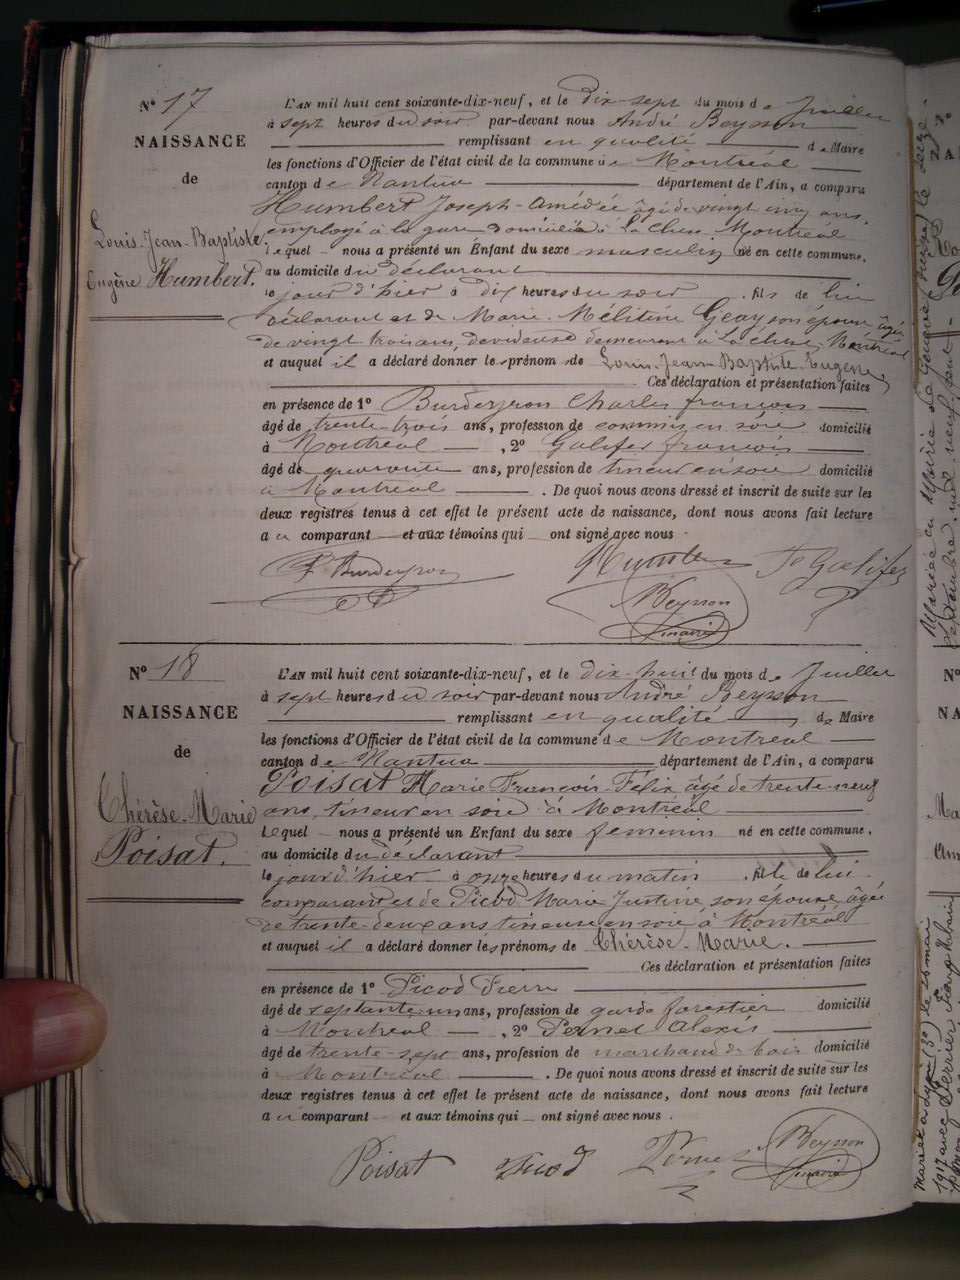 N° 17
NAISSANCE
de
Louis-Jean-Baptiste
Eugène Humbert.
L'AN mil huit cent soixante-dix-neuf, et le dix-sept du mois de Juillet
à sept heures du soir par-devant nous André Beysson
remplissant en qualité de Maire
les fonctions d'Officier de l'état civil de la commune de Montréal
canton de Nantua département de l'Ain, a comparu
Humbert Joseph-Amédée âgé de vingt cinq ans,
employé à la gare domicilié à La Cluse-Montréal
lequel nous a présenté un Enfant du sexe masculin né en cette commune,
au domicile du déclarant
le jour d'hier à dix heures du soir . fils de lui
déclarant et de Marie-Mélitine Geay son épouse âgée
de vingt trois ans, devideuse demeurant à La Cluse-Montréal
et auquel il a déclaré donner les prénoms de Louis-Jean-Baptiste-Eugène
Ces déclaration et présentation faites
en présence de 1° Burdeyron Charles françois
âgé de trente trois ans, profession de commis en soie domicilié
à Montréal , 2° Galifer françois
âgé de quarante ans, profession de tisseur en soie domicilié
à Montréal . De quoi nous avons dressé et inscrit de suite sur les
deux registres tenus à cet effet le présent acte de naissance, dont nous avons fait lecture
au comparant et aux témoins qui ont signé avec nous
Burdeyron Humbert Galifer
Beysson
maire
N° 18
NAISSANCE
de
Thérèse-Marie
Poisat.
L'AN mil huit cent soixante-dix-neuf, et le dix-huit du mois de Juillet
à sept heures du soir par-devant nous André Beysson
remplissant en qualité de Maire
les fonctions d'Officier de l'état civil de la commune de Montréal
canton de Nantua département de l'Ain, a comparu
Poisat Marie François-Félix âgé de trente-neuf
ans, tisseur en soie à Montréal
Lequel nous a présenté un Enfant du sexe feminin né en cette commune,
au domicile du déclarant
le jour d'hier à onze heures du matin . fille de lui
comparant et de Picod Marie Justine, son épouse, âgée
de trente-deux ans tisseuse en soie à Montréal
et auquel il a déclaré donner les prénoms de Thérèse-Marie.
Ces déclaration et présentation faites
en présence de 1° Picod Pierre
âgé de septante un ans, profession de garde forestier domicilié
à Montréal , 2° Pernet Alexis
âgé de trente-sept ans, profession de marchand de bois domicilié
à Montréal . De quoi nous avons dressé et inscrit de suite sur les
deux registres tenus à cet effet le présent acte de naissance, dont nous avons fait lecture
au comparant et aux témoins qui ont signé avec nous .
Poisat Picod Pernet Beysson
maire